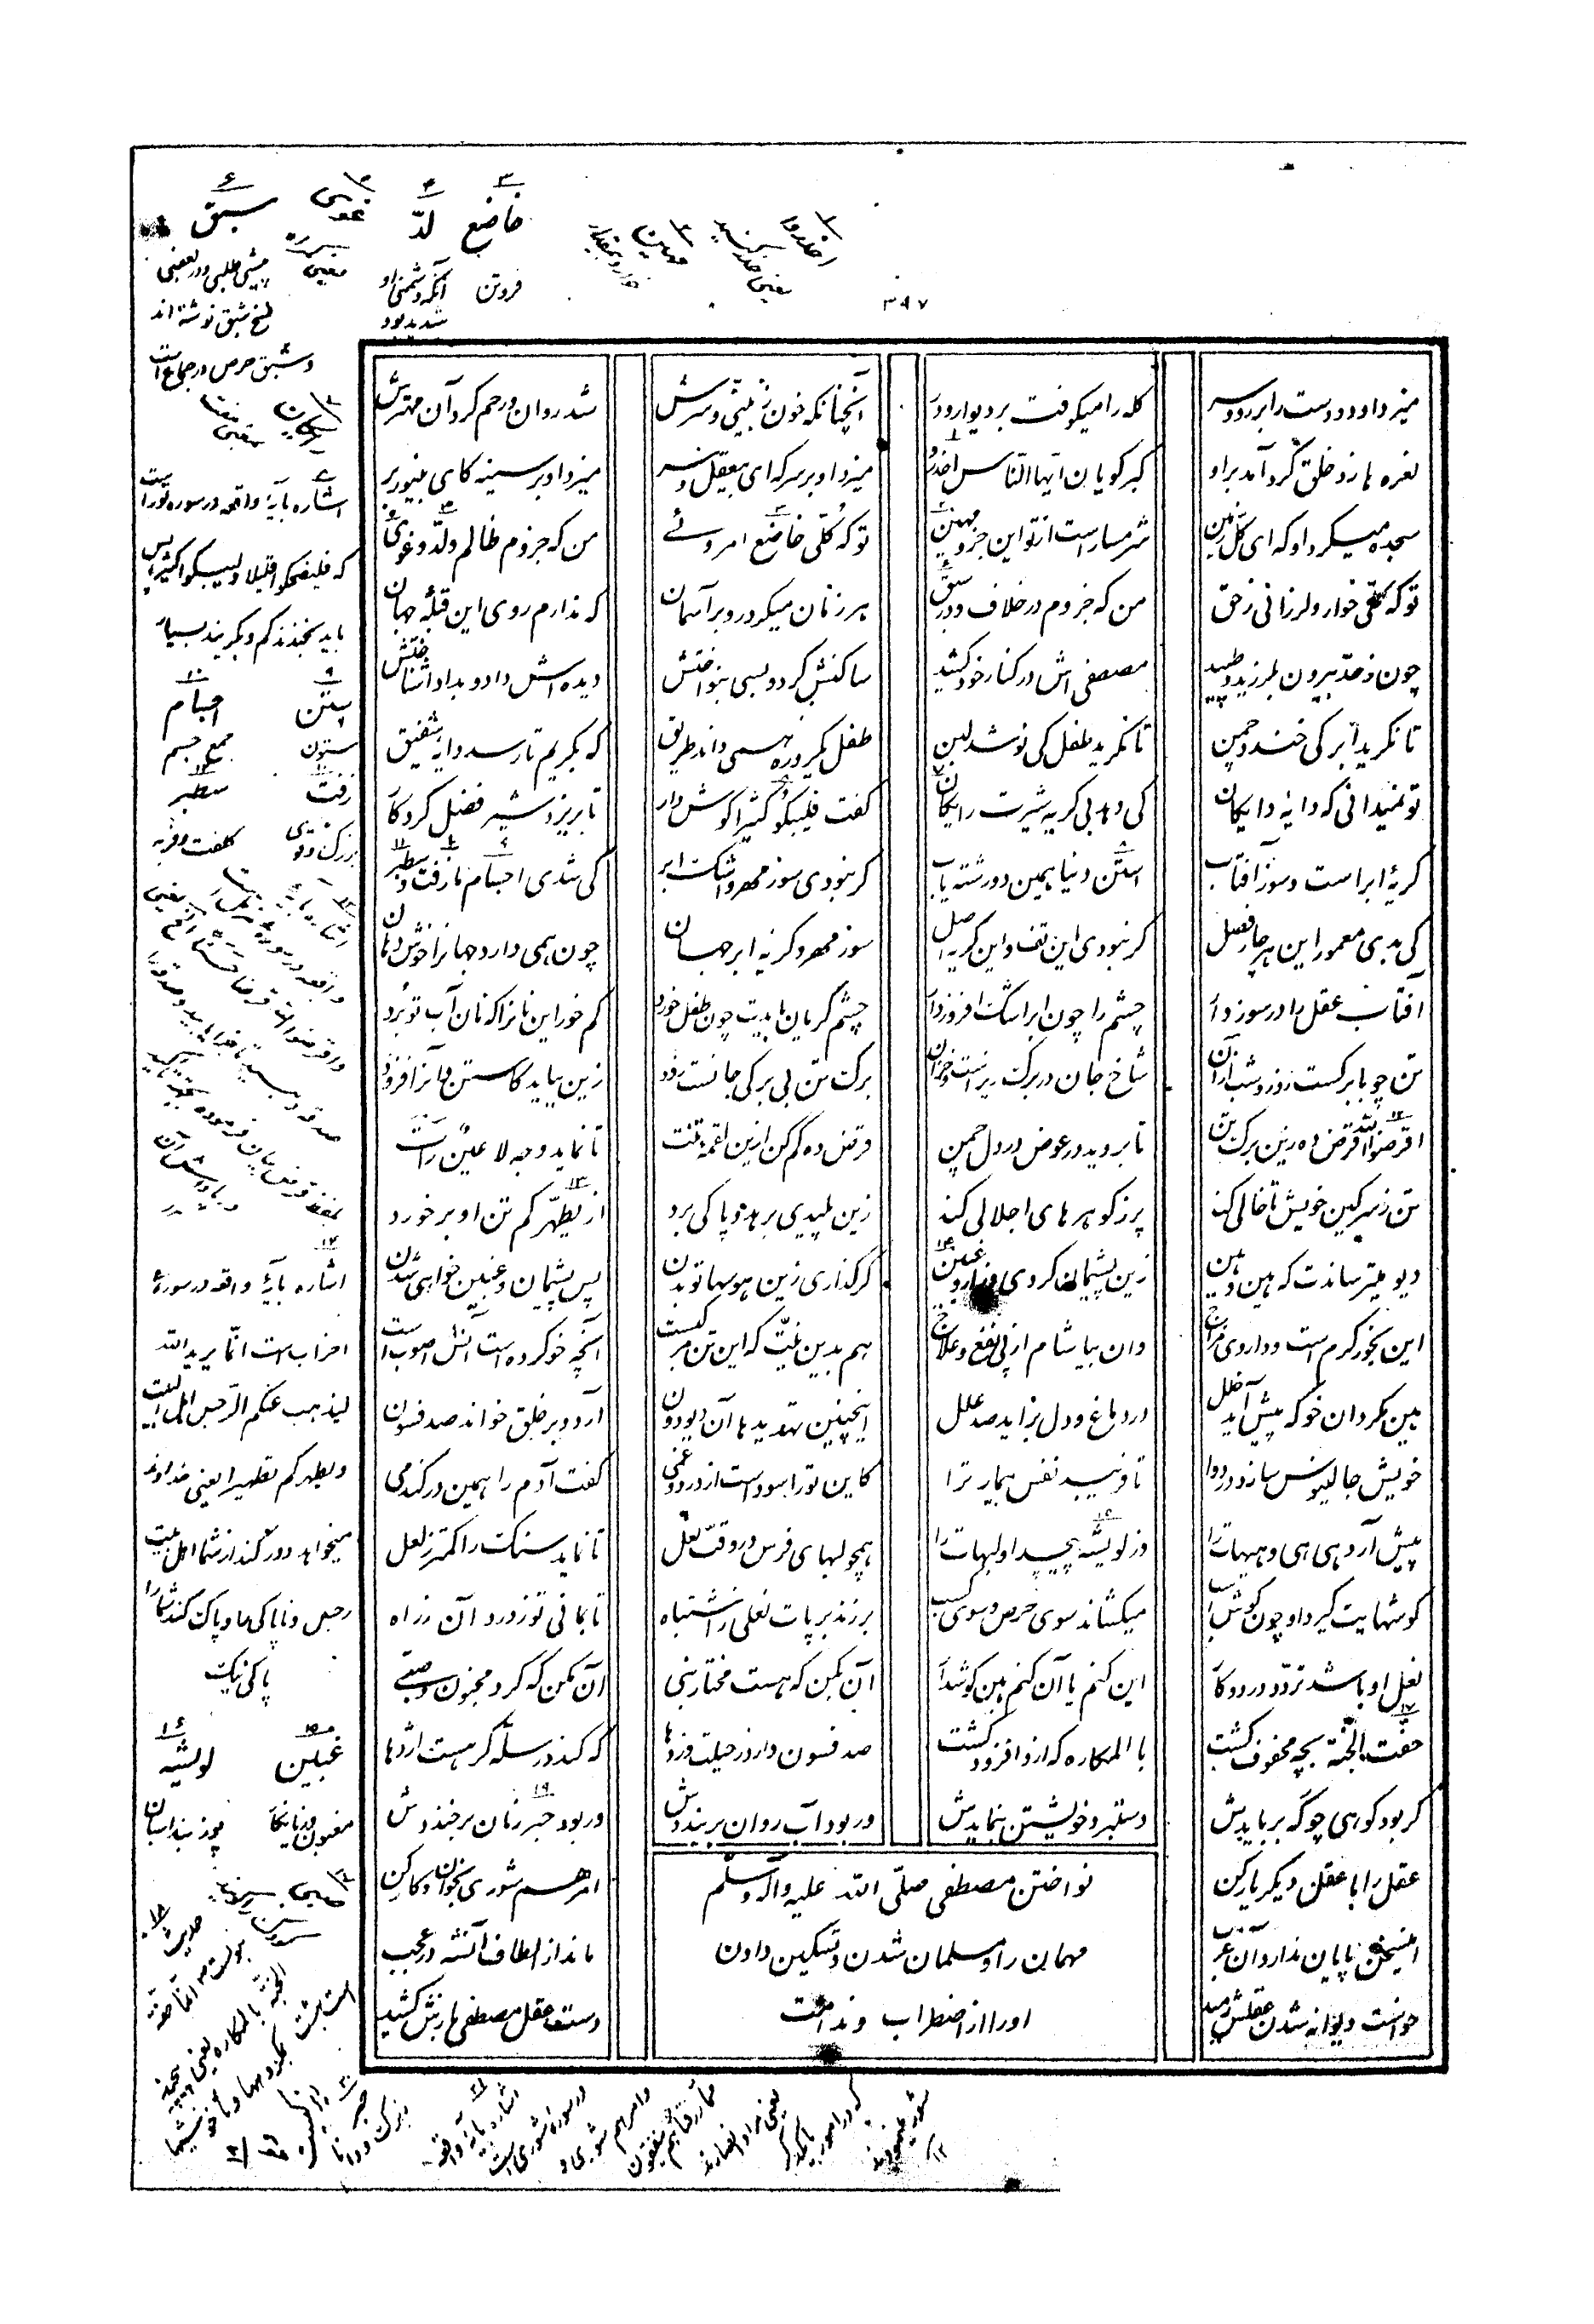 ۳۹۷
خاضع
فروتن
لدّ
آنکه دشمنی او
شدید بود
غوی
سبق
پیشی طلبی و در بعضی
نسخ شبق نوشته اند
و شبق حرص در جماع است
میزد او دو دست را بر رو و سر
کله را میکوفت بر دیوار و در
آنچنانکه خون ز بینی و سرش
شد روان و رحم کرد آن مهترش
نعره ها زد خلق گرد آمد بر او
گبر گویان ایّها النّاس احذروا
میزد او بر سر که ای بیعقل سر
میزد او بر سینه کای بینور بر
سجده میکرد او که ای کلّ زمین
شرمسار است از تو این جزو مهین
تو که کلّی خاضع امر وئی
من که جزوم ظالم ولدّ و غوی
تو که کلّی خوار و لرزانی ز حق
من که جزوم در خلاف و در سبق
هر زمان میکرد رو بر آسمان
که ندارم روی این قبله جهان
چون ز حدّ بیرون بلرزید و طپید
مصطفی اش در کنار خود کشید
ساکنش کرد و بسی بنواختش
دیده اش داد و بداد اشناختش
تا نگرید ابر کی خندد چمن
تا نگرید طفل کی نوشد لبن
طفل یکروزه همی داند طریق
که بگریم تا رسد دایه شفیق
تو نمیدانی که دایه دایگان
کی دهد بی گریه شیرت رایگان
گفت فلیبکوا کثیرا گوش دار
تا بریزد شیر فضل کردگار
گریه ابر است و سوز آفتاب
استن دنیا همین دو رشته یاب
گر نبودی سوز مهر و اشک ابر
کی شدی اجسام ما زفت و سطبر
کی بدی معمور این هر چار فصل
گر نبودی این تف و این گریه اصل
سوز مهر و گریه ابر جهان
چون همی دارد جهانرا خوش دهان
آفتاب عقل را در سوز دار
چشم را چون ابر اشک افروز دار
چشم گریان بایدت چون طفل خورد
کم خور این نانرا که نان آب تو برد
تن چو با برگست روز و شب از آن
شاخ جان در برگ ریز است و خزان
برگ تن بی برگی جانست زود
زین بباید کاستن و آنرا فزود
اقرضوا اللّه قرض ده زین برگ تن
تا بروید در عوض در دل چمن
قرض ده کم کن ازین لقمه تنت
تا نماید وجه لا عینٌ رأت
تن ز سرگین خویش تا خالی کند
پر ز گوهرهای اجلالی کند
زین پلیدی برهد و پاکی برد
از یطهّرکم تن او بر خورد
دیو میترساندت که هین و هین
زین پشیمان گردی و غبین
گر گذاری زین هوسها تو بدن
پس پشیمان و غبین خواهی شدن
این بخور گرم است و داروی مزاج
وان بیاشام از پی نفع و علاج
هم بدین نیّت که این تن مرکبست
آنچه خو کرده است آنش اصوب است
هین مگردان خو که پیش آید خلل
در دماغ و دل بزاید صد علل
اینچنین تهدیدها آن دیو دون
آرد و بر خلق خواند صد فسون
خویش جالینوس سازد در دوا
تا فریبد نفس بیمار ترا
کاین تو را سود است از درد و غمی
گفت آدم را همین در گندمی
پیش آرد هی هی و هیهات را
وز لویشه پیچد او لبهات را
همچو لبهای فرس در وقت نعل
تا نماید سنگ را کمتر ز لعل
گوشهایت گیرد او چون گوش اسب
میکشاند سوی حرص و سوی کسب
بر زند بر پات نعلی ز اشتباه
تا بمانی تو ز درد آن ز راه
نعل او باشد تردّد در دو کار
این کنم یا آن کنم هین گوش دار
آن بکن که هست مختار نبی
آن مکن که کرد مجنون و صبی
حفّت الجنّة بچه محفوف گشت
با المکاره که ازو افزود کشت
صد فسون دارد ز حیلت وز دها
که کند در سلّه گر هست اژدها
گر بود کوهی چو که بربایدش
دستبرد خویشتن بنمایدش
ور بود آب روان بربنددش
ور بود حبر زمان برخنددش
نواختن مصطفی صلّی اللّه علیه و آله و سلّم
مهمان را و مسلمان شدن و تسکین دادن
او را از اضطراب و ندامت
عقل را با عقل دیگر یار کن
امرهم شوری بخوان و کار کن
این سخن پایان ندارد آن عرب
ماند از الطاف آن شه در عجب
خواست دیوانه شدن عقلش رمید
دست عقل مصطفی بازش کشید
اشاره بآیۀ واقعه در سوره توراست
که فلیضحکوا قلیلا ولیبکوا کثیرا پس
باید بخندند کم و بگریند بسیار
استن
ستون
اجسام
جمع جسم
زفت
سطبر
کلفت و فربه
اشاره بآیۀ واقعه در سورۀ
احزاب است انّما یرید اللّه
لیذهب عنکم الرّجس اهل البیت
و یطهرکم تطهیرا یعنی خداوند
میخواهد دور کند از شما اهل بیت
رجس و ناپاکی ها و پاک کند شما را
پاکی نیک
غبین
لویشه